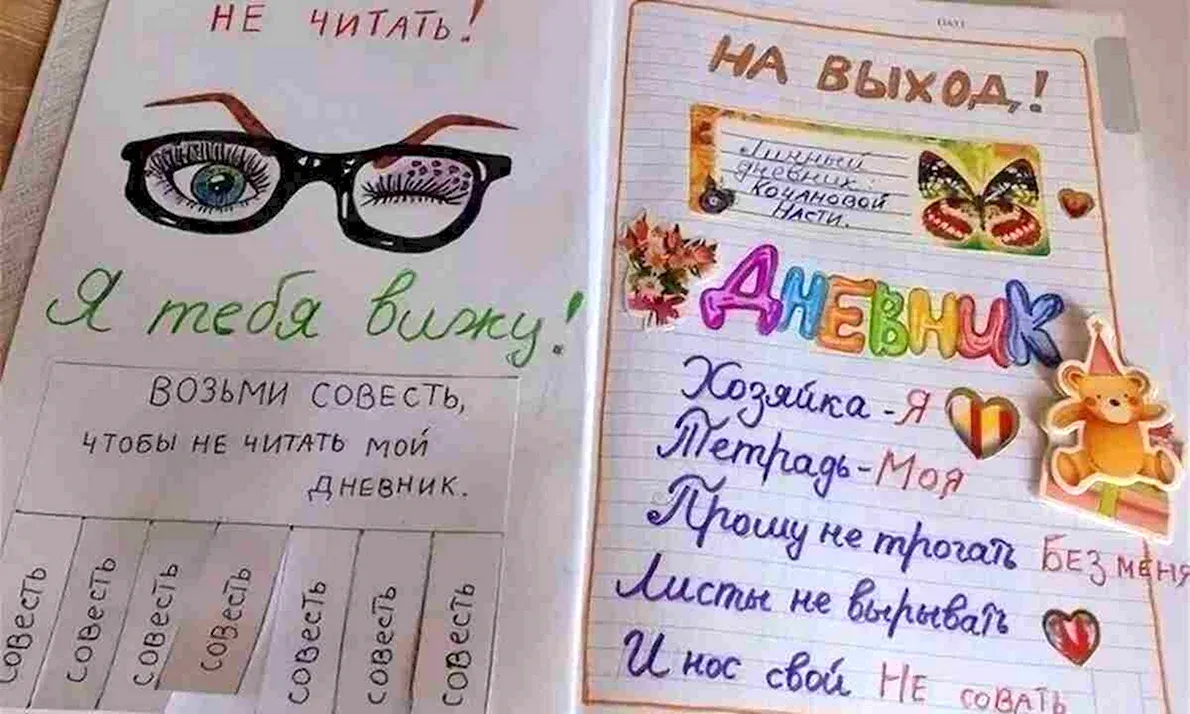 НЕ ЧИТАТЬ!
Я тебя вижу!
ВОЗЬМИ СОВЕСТЬ,
ЧТОБЫ НЕ ЧИТАТЬ МОЙ
ДНЕВНИК.
СОВЕСТЬ
СОВЕСТЬ
СОВЕСТЬ
СОВЕСТЬ
СОВЕСТЬ
СОВЕСТЬ
СОВЕСТЬ
DATE
НА ВЫХОД!
Личный
дневник:
КОЧАНОВОЙ
НАСТИ.
ДНЕВНИК
Хозяйка - Я
Тетрадь - Моя
Прошу не трогать БЕЗ МЕНЯ
Листы не вырывать
И нос свой НЕ СОВАТЬ